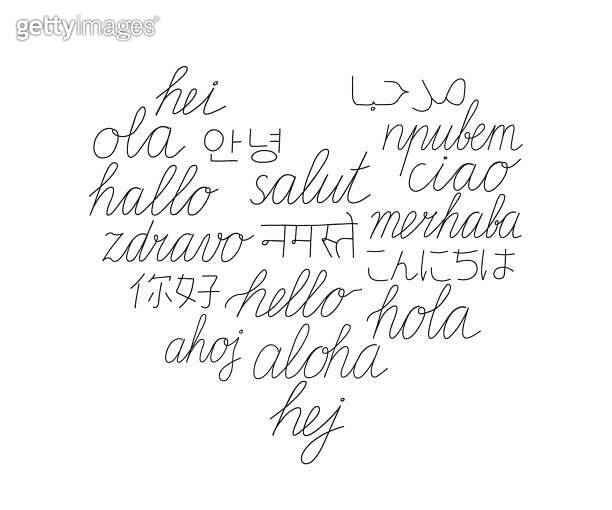 gettyimages®
hei
مرحبا
ola 안녕 привет
hallo salut ciao
zdravo नमस्ते merhaba
こんにちは
你好 hello hola
ahoj aloha
hej